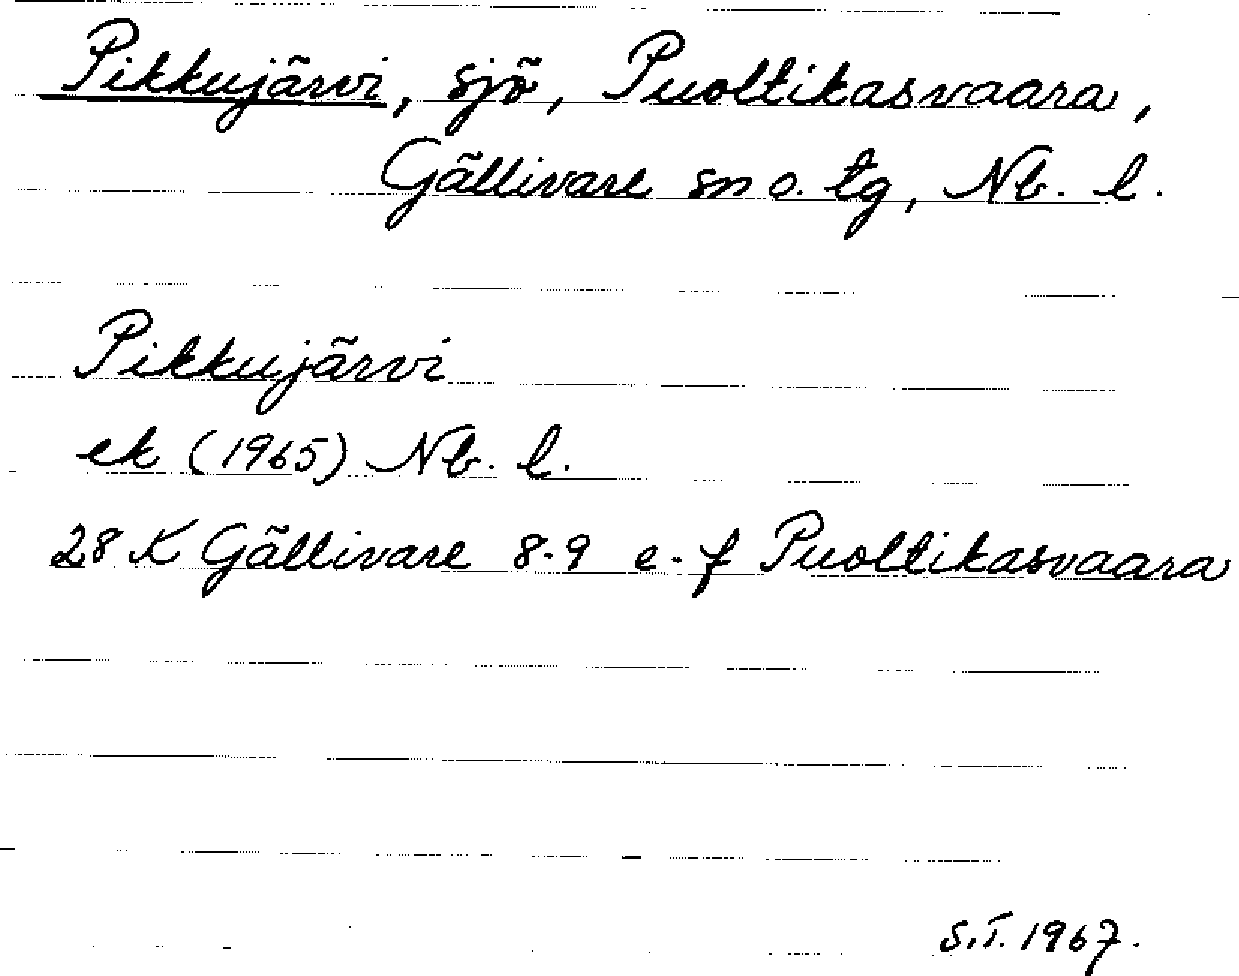 Pikkujärvi, sjö, Puoltikasvaara,
Gällivare sn o. tg, Nb. l.
Pikkujärvi
ek (1965) Nb. l.
28 K Gällivare 8-9 e-f Puoltikasvaara
S.T. 1967.